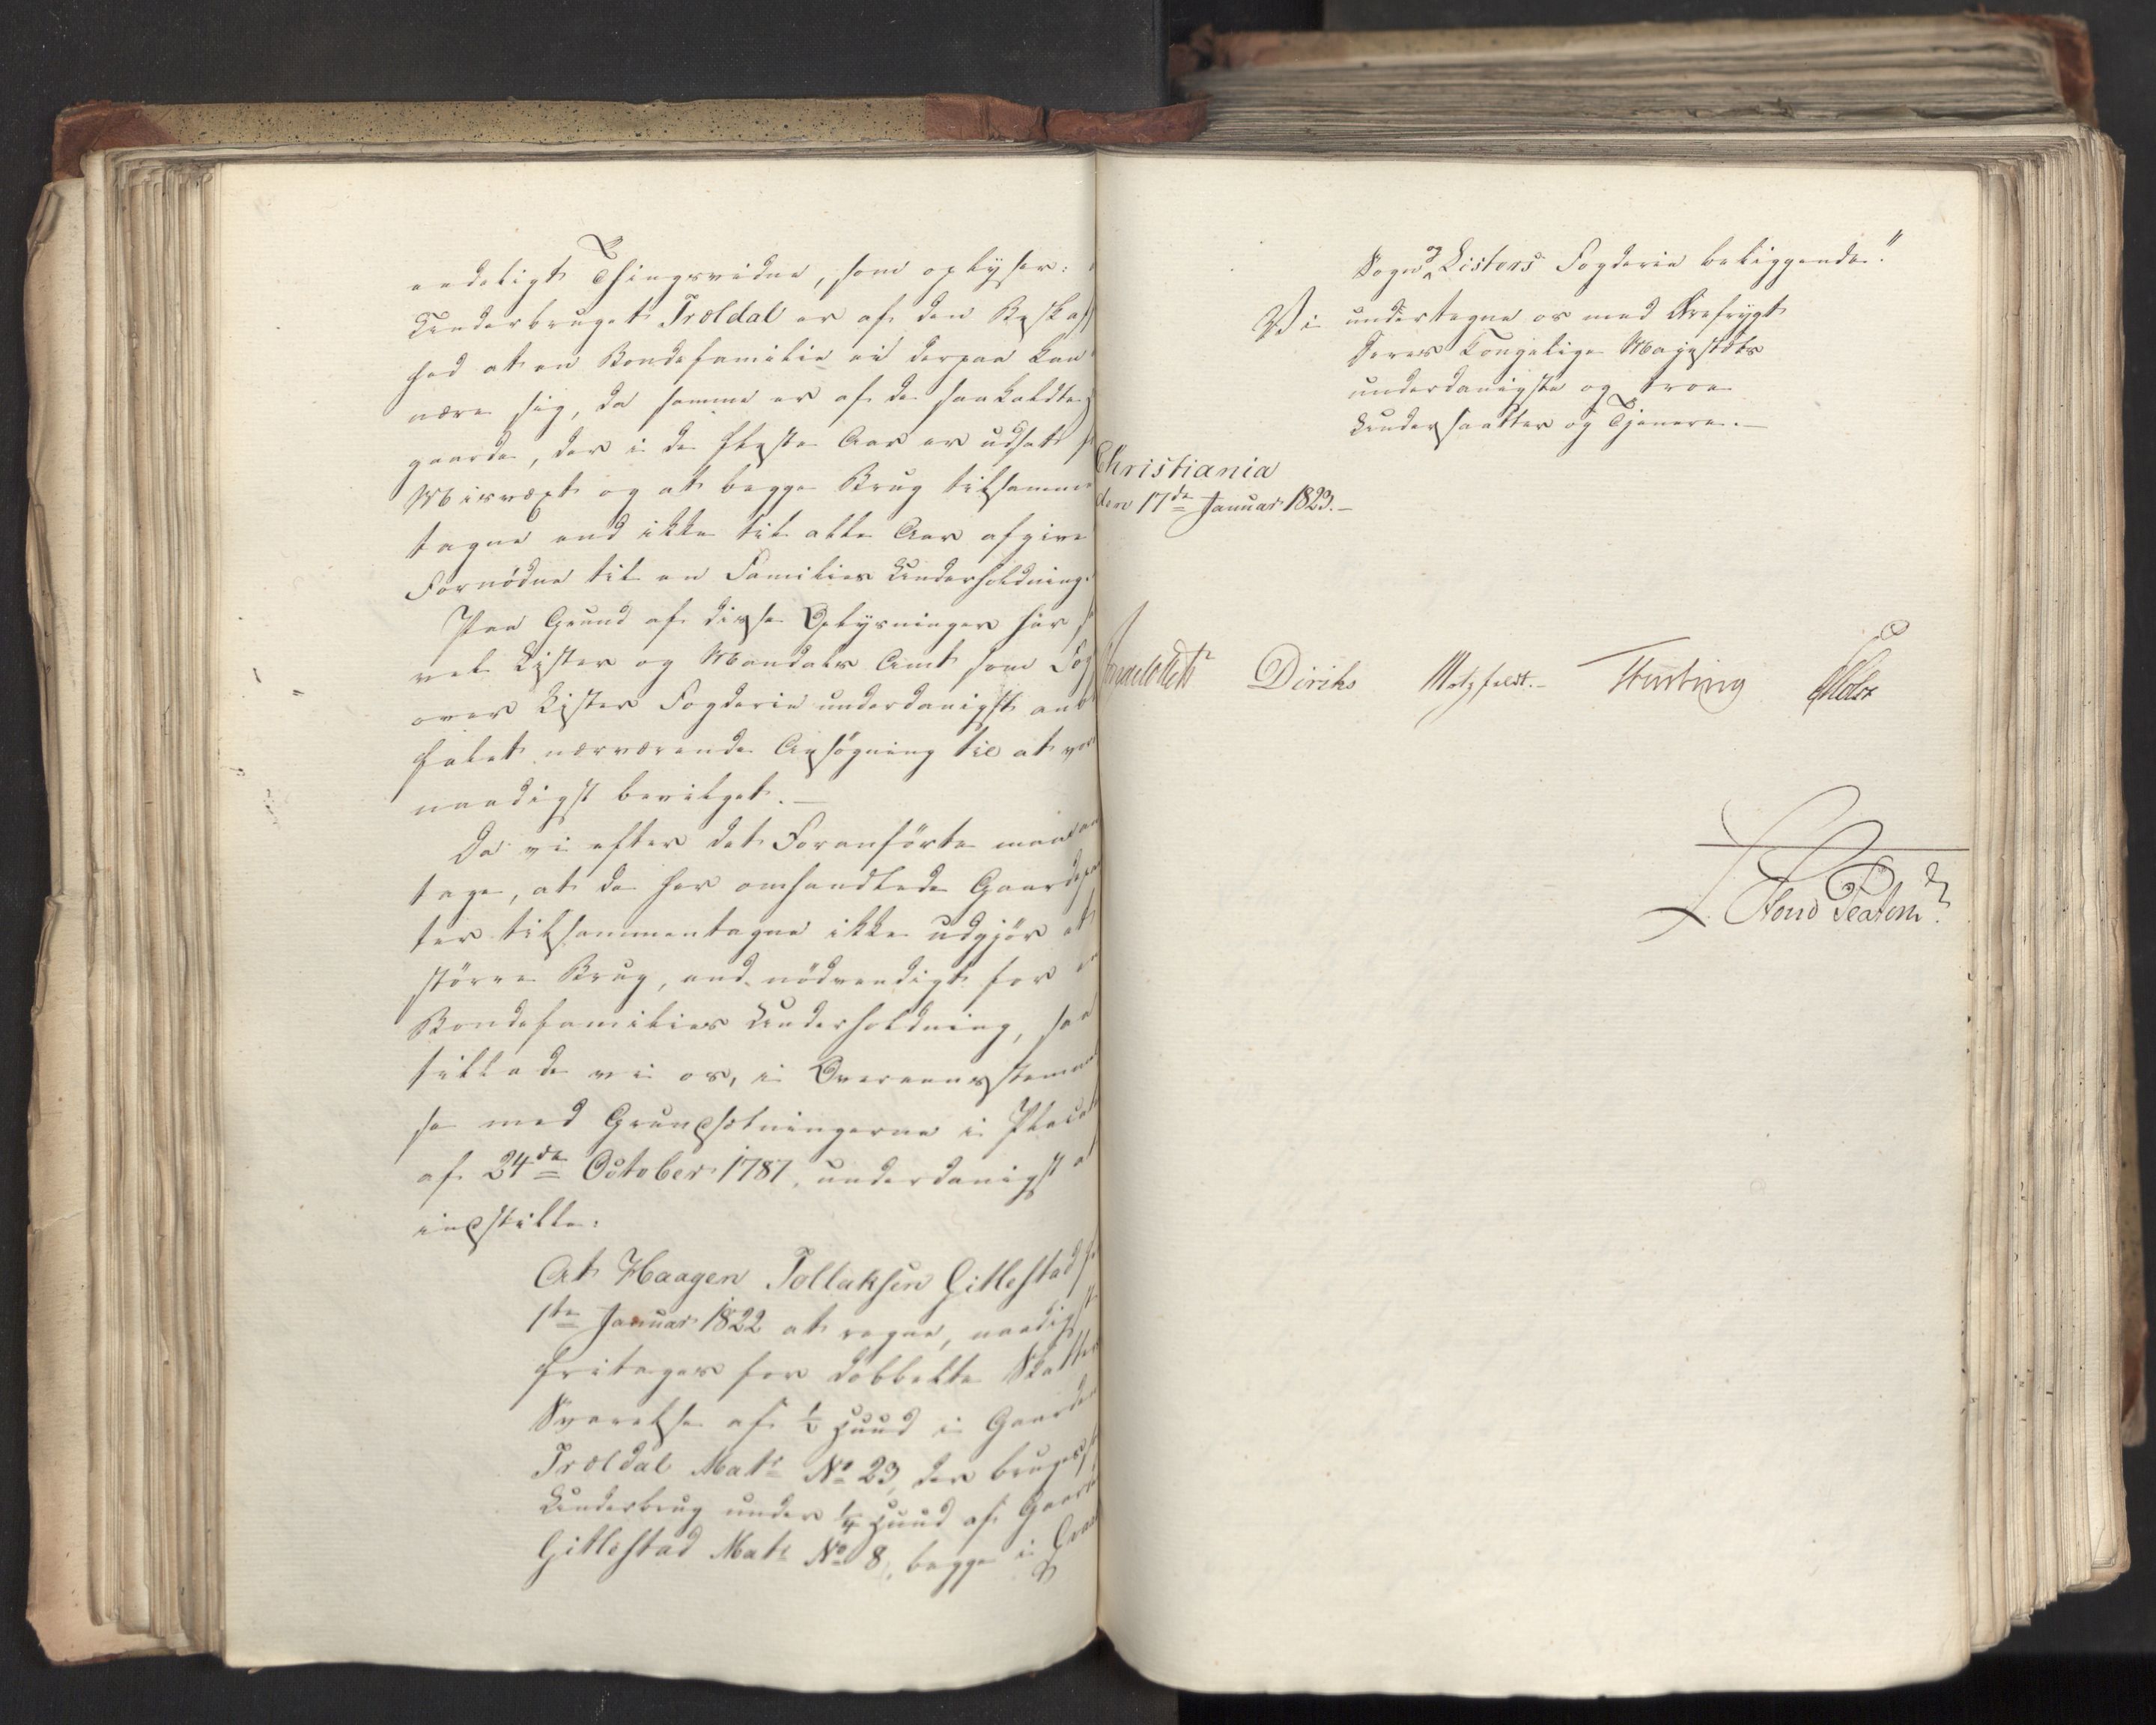 endeligt Thingsvidne, som oplyser:
Underbruget Troldal er af den Beskaf
hed at en Bondefamilie ei derpaa kan
nære sig, da samme er af de saakaldte
gaarde, der i de fleste Aar er udsat
Misvæxt og at begge Brug tilsammen
tagne end ikke til alle Aar afgive
Fornödne til en Families Underholdning.
Paa Grund af disse Oplysninger har
vel Lister og Mandals Amt som Fog
over Lister Fogderie underdanigst anbe
falet nærværende Ansögning til at vor
naadigst bevilget.—
Da vi efter det Foranförte maa an
tage, at de her omhandlede Gaardepar
ter tilsammentagne ikke udgjör et
större Brug, end nödvendigt for en
Bondefamilies Underholdning, saa
tillade vi os, i Overeensstemmel
se med Grundsætningerne i Placat
af 24de October 1787, underdanigst at
indstille:
At Haagen Tollaksen Gitlestad fr
1ste Januar 1822 at regne, naadigst
fritages for dobbelte Skatters
Svarelse af ½ Huud i Gaarden
Troldal Matr No 23, der bruges s
Underbrug under ¼ Huud af Gaard
Gitlestad Matr No 8, begge i Qvas
Sogn og Listers Fogderie beliggende."
Vi undertegne os med Ærefrygt
Deres Kongelige Majestæts
underdanigste og troe
Undersaatter og Tjenere.—
Christiania
den 17de Januar 1823.—
Diriks Motzfeldt.— Holst